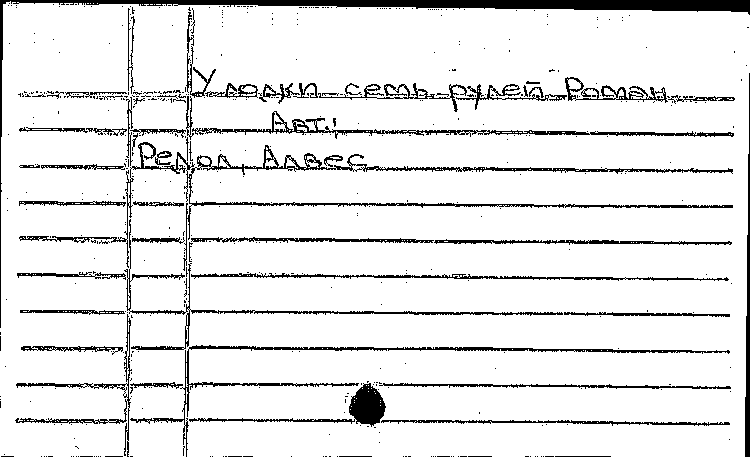 У лодки семь рулей Роман
Авт.:
Редол, Алвес